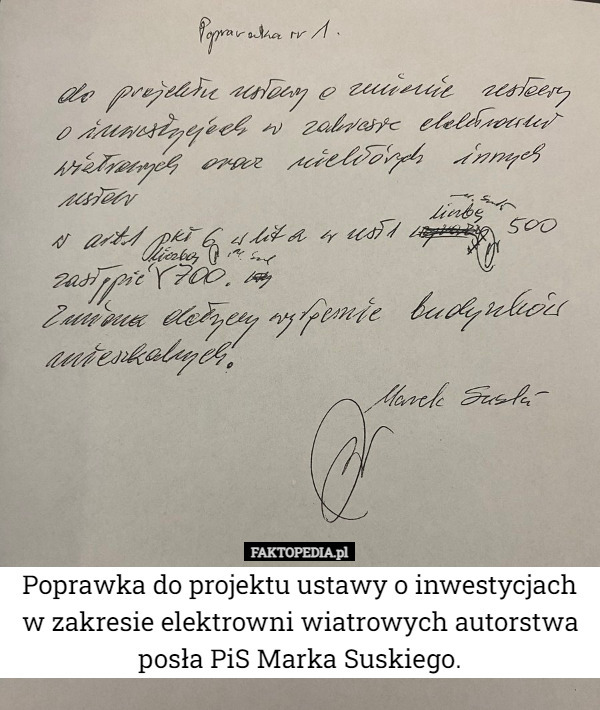 Poprawka nr 1.
do projektu ustawy o zmianie ustawy
o inwestycjach w zakresie elektrowni
wiatrowych oraz niektórych innych
ustaw
liczbę
w art 1 pkt 6 w lit a w ust 1 500
liczbą
zastąpić 700.
Zmiana dotyczy wyłącznie budynków
mieszkalnych.
Marek Suski
FAKTOPEDIA.pl
Poprawka do projektu ustawy o inwestycjach
w zakresie elektrowni wiatrowych autorstwa
posła PiS Marka Suskiego.